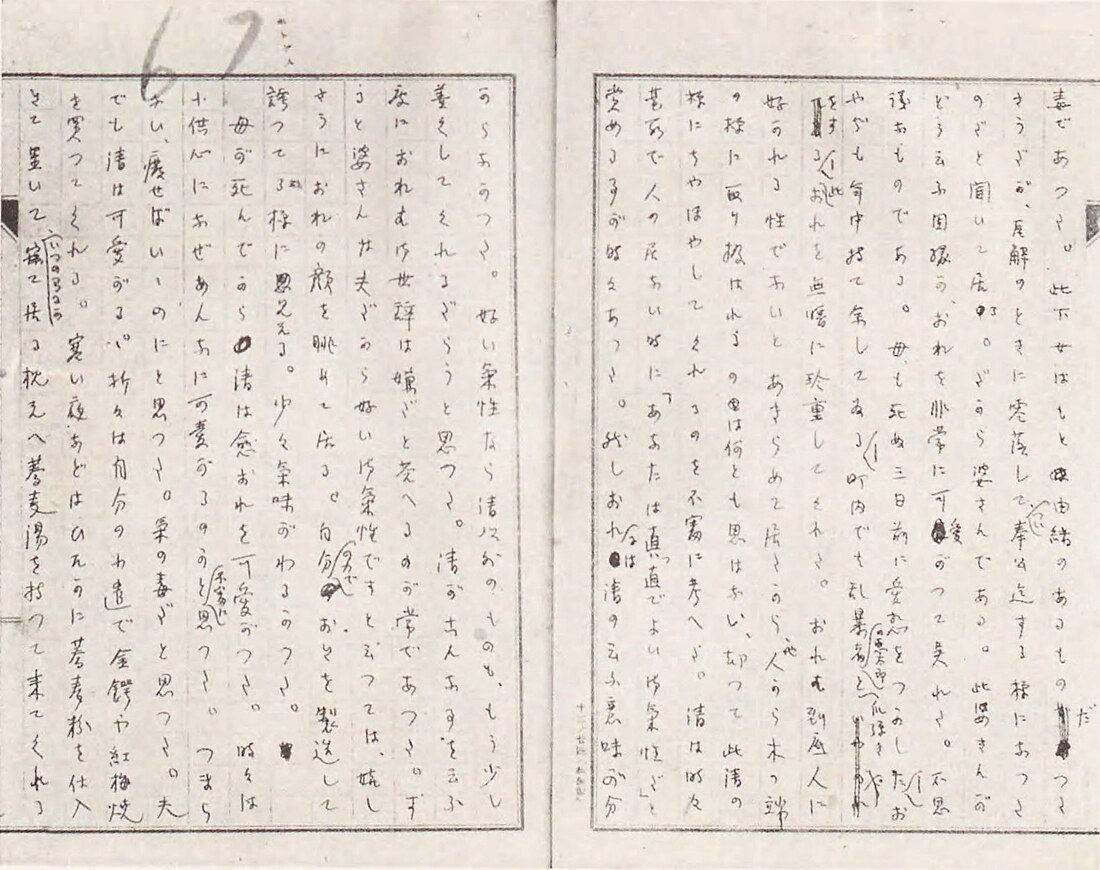 毒であつた。此下女はもと由緒のあるものだつた
さうだが、瓦解のときに零落して、つい奉公迄する様になつた
のだと聞いて居る。だから婆さんである。此婆さんが
どう云ふ因縁か、おれを非常に可愛がつて呉れた。不思
議なものである。母も死ぬ三日前に愛想をつかした お
やぢも年中持て余してゐる 町内では乱暴者の悪太郎と爪弾き
をする 此おれを無暗に珍重してくれた。おれは到底人に
好かれる性でないとあきらめて居たから、他人から木の端
の様に取り扱はれるのは何とも思はない、却つて此清の
様にちやほやしてくれるのを不審に考へた。清は時々
台所で人の居ない時に「あなたは真つ直でよい御気性だ」と
賞める事が時々あつた。然しおれには清の云ふ意味が分
67
からなかつた。好い気性なら清以外のものも、もう少し
善くしてくれるだらうと思つた。清がこんな事を云ふ
度におれは御世辞は嫌だと答へるのが常であつた。す
ると婆さんは夫だから好い御気性ですと云つては、嬉し
さうにおれの顔を眺めて居る。自分の力でおれを製造して
誇つてる様に見える。少々気味がわるかつた。
母が死んでから清は愈おれを可愛がつた。時々は
小供心になぜあんなに可愛がるのかと不審に思つた。つまら
ない、廃せばいゝのにと思つた。気の毒だと思つた。夫
でも清は可愛がる。折々は自分の小遣で金鍔や紅梅焼
を買つてくれる。寒い夜などはひそかに蕎麦粉を仕入
れて置いて、いつの間にか寐て居る枕元へ蕎麦湯を持つて来てくれる